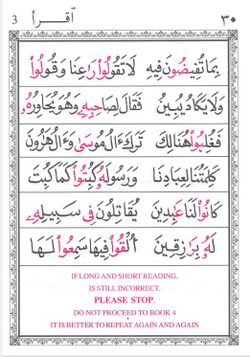 ٣٠ اقرأ 3
بِمَا تُفِيضُونَ فِيهِ لَا تَقُولُوا۟ رَٰعِنَا وَقُولُوا۟
وَلَا يَكَادُ يُبِينُ فَقَالَ لِصَٰحِبِهِۦ وَهُوَ يُحَاوِرُهُۥٓ
فَغُلِبُوا۟ هُنَالِكَ تَرَكَ ءَالُ مُوسَىٰ وَءَالُ هَٰرُونَ
كَلِمَتُنَا لِعِبَادِنَا وَرَسُولَهُۥ كُبِتُوا۟ كَمَا كُبِتَ
كَانُوا۟ لَنَا عَٰبِدِينَ يُقَٰتِلُونَ فِى سَبِيلِهِۦ
لَهُۥ بِرَٰزِقِينَ أُلْقُوا۟ فِيهَا سَمِعُوا۟ لَهَا
IF LONG AND SHORT READING,
IS STILL INCORRECT.
PLEASE STOP.
DO NOT PROCEED TO BOOK 4
IT IS BETTER TO REPEAT AGAIN AND AGAIN